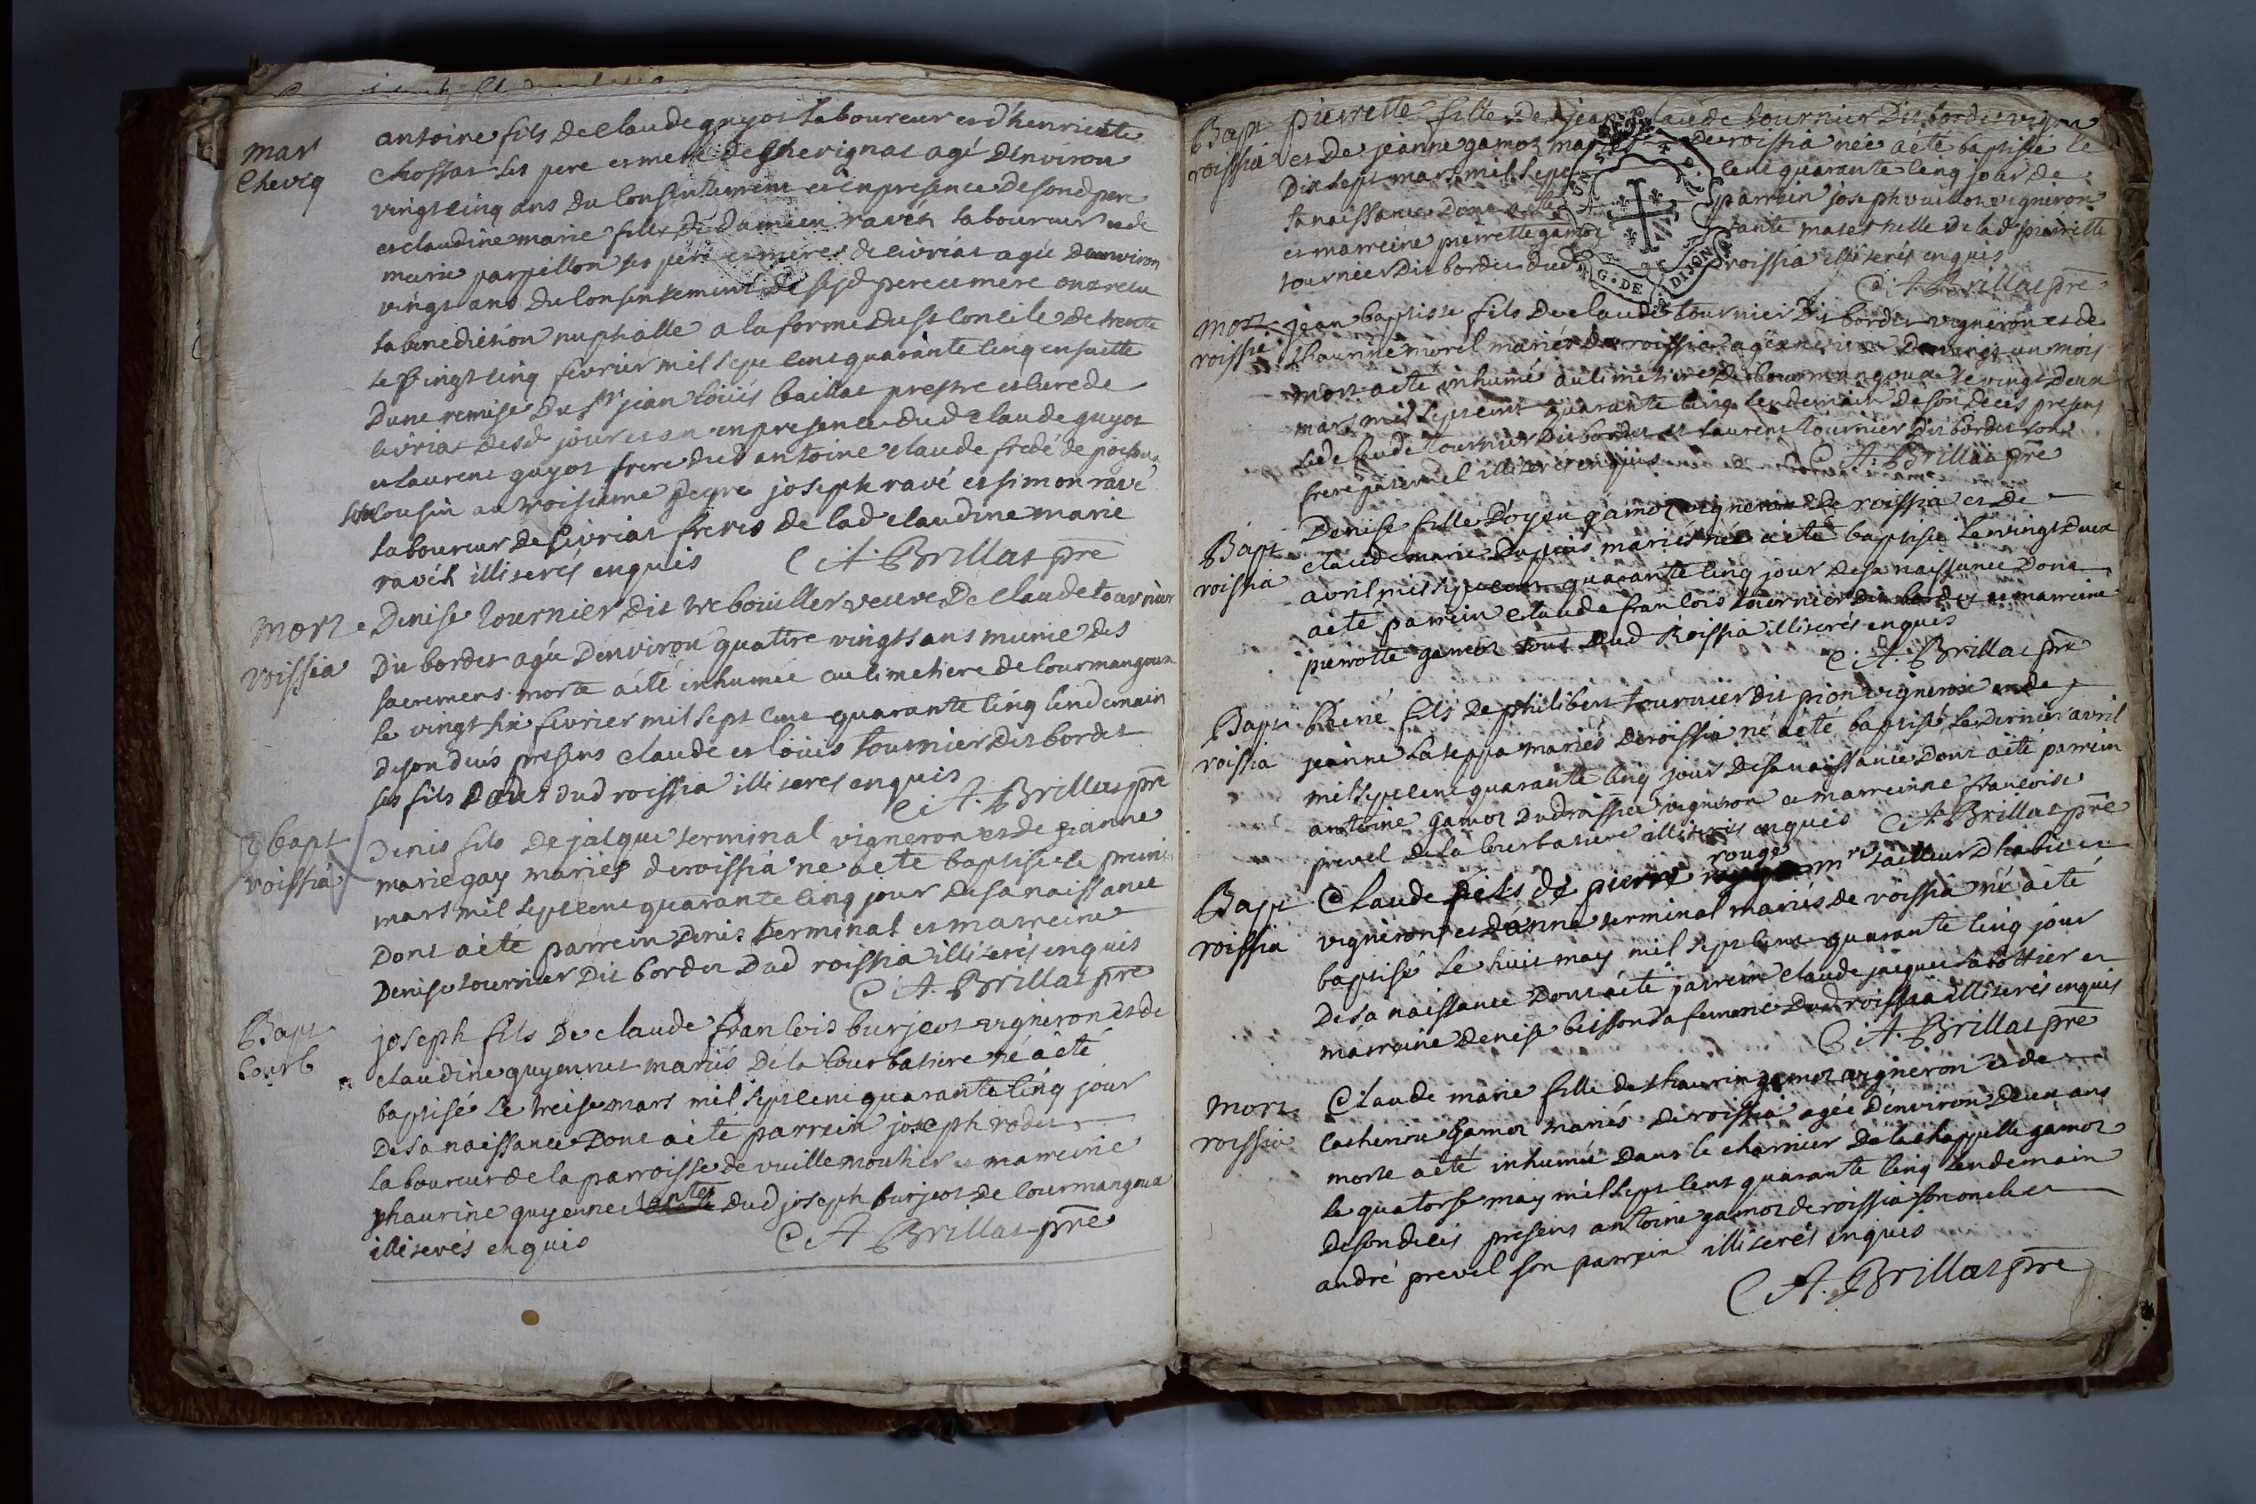 mar
Chevig
antoine fils de claude guyot laboureur et d'henriette
chossat ses pere et mere de Chevignat agé d'environ
vingt cinq ans du consentement et en presence de sond pere
et claudine marie fille de damien ravét laboureur et de
marie parpillon ses pere et meres de civriat agée d'environ
vingt ans du consentement de sesd pere et mere ont recu
la benediction nuptialle a la forme du st concile de trente
le vingt cinq fevrier mil sept cent quarante cinq ensuitte
d'une remise du sr jean loüis baillat prestre et curé de
civriat desd jour et an en presence dud claude guyot
et laurent guyot frere dud antoine claude
son cousin au troisieme degre joseph ravé et simon ravé
laboureur de civriat freres de lad claudine marie
ravét illiterés enquis C A. Brillat pre
mort
roissia
Denise tournier dit trebouiller veuve de claude tournier
dit bordet agée d'environ quattre vingts ans munie des
sacremens morte a été inhumée au cimetiere de courmangoux
le vingt six fevrier mil sept cent quarante cinq lendemain
de son decés presens claude et loüis tournier dit bordet
ses fils dud roissia illiterés enquis
C A. Brillat pre
Bapt
roissia
Denis fils de jacque terminal vigneron et de jeanne
marie gay mariés de roissia né a eté baptisé le premier
mars mil sept cent quarante cinq jour de sa naissance
dont a eté parrein denis terminal et marreine
denise tournier dit bordet dud roissia illiterés enquis
C A. Brillat pre
Bapt
Courb
joseph fils de claude francois burjeot vigneron et de
claudine guyennet mariés de la courbatiere né a eté
baptisé le treise mars mil sept cent quarante cinq jour
de sa naissance dont a eté parrein joseph rodet
laboureur de la parroisse de vuillemoutier et marreine
thaurine guyennet tante dud joseph burjeot de courmangoux
illiterés enquis C A Brillat pre
Bapt
roissia
pierrette fille de jean claude tournier dit bordet vigneron
et de jeanne gamot mariés de roissia née a été baptisée le
dix sept mars mil sept cent quarante cinq jour de
sa naissance dont a eté parrein joseph vuillot vigneron
et marreine pierrette gamot tante maternelle de lad pierrette
tournier dit bordet dud roissia illiterés enquis
C A Brillat pre
G. DE DIJON
mort
roissia
jean baptiste fils de claude tournier dit bordet vigneron et de
thaurine morel mariés de roissia agé environ de vingt un mois
mort a eté inhumé au cimetiere de courmangoux le vingt deux
mars mil sept cent quarante cinq lendemain de son decés presens
led claude tournier dit bordet et laurent tournier dit bordet son
frere paternel illiterés enquis C A. Brillat pre
Bapt
roissia
Denise fille d'oyen gamot vigneron de roissia et de
claude marie dupuis mariés née a eté baptisée le vingt deux
avril mil sept cent quarante cinq jour de sa naissance dont
a eté parrein claude francois tournier dit bordet et marreine
pierrotte gamot tous dud Roissia illiterés enquis
C A. Brillat pre
Bapt
roissia
fils de philibert tournier dit pion vigneron et de
jeanne lateppa mariés de roissia né a eté baptisé le dernier avril
mil sept cent quarante cinq jour de sa naissance dont a eté parrein
antoine gamot dud roissia vigneron et marreinne francoise
prevel de la courbatiere illiterés enquis C A. Brillat pre
Bapt
roissia
Claude fils de pierre rouge mre tailleur d'habits et
vigneron et d'anne terminal mariés de roissia né a eté
baptisé le huit may mil sept cent quarante cinq jour
de sa naissance dont a eté parrein claude jacquet sabottier et
marreine denise buisson sa femme dud roissia illiterés enquis
C A. Brillat pre
mort
roissia
Claude marie fille de thaurin gamot vigneron et de
catherine gamot mariés de roissia agée d'environ deux ans
morte a eté inhumée dans le charnier de la chappelle gamot
le quatorse may mil sept cent quarante cinq lendemain
de son decés presens antoine gamot de roissia son oncle et
andré prevel son parrein illiterés enquis
C A. Brillat pre